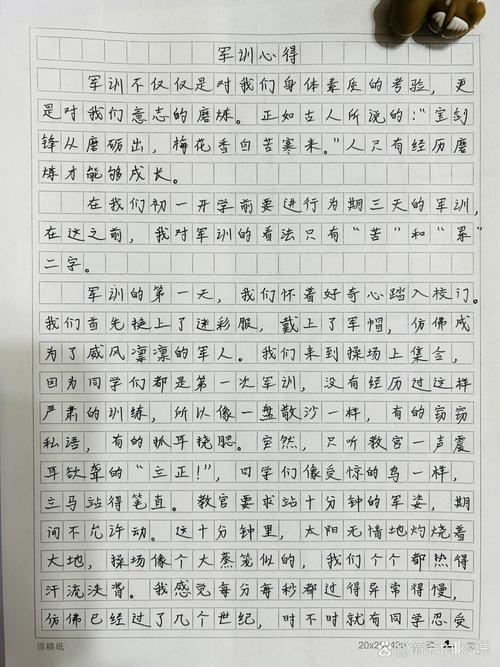 军训心得
军训不仅仅是对我们身体素质的考验，更
是对我们意志的磨炼。正如古人所说的："宝剑
锋从磨砺出，梅花香自苦寒来。"人只有经历磨
炼才能够成长。
在我们初一开学前要进行为期三天的军训，
在这之前，我对军训的看法只有"苦"和"累"
二字。
军训的第一天，我们怀着好奇心踏入校门。
我们首先换上了迷彩服，戴上了军帽，仿佛成
为了威风凛凛的军人。我们来到操场上集合，
因为同学们都是第一次军训，没有经历过这样
严肃的训练，所以像一盘散沙一样，有的窃窃
私语，有的抓耳挠腮。突然，只听教官一声震
耳欲聋的"立正！"，同学们像受惊的鸟一样，
立马站得笔直。教官要求站十分钟的军姿，期
间不允许动。这十分钟里，太阳无情地灼烧着
大地，操场像个大蒸笼似的，我们个个都热得
汗流浃背。我感觉每分每秒都过得异常得慢，
仿佛已经过了几个世纪，时不时就有同学忍受
原稿纸 20x20=400 第 1 页